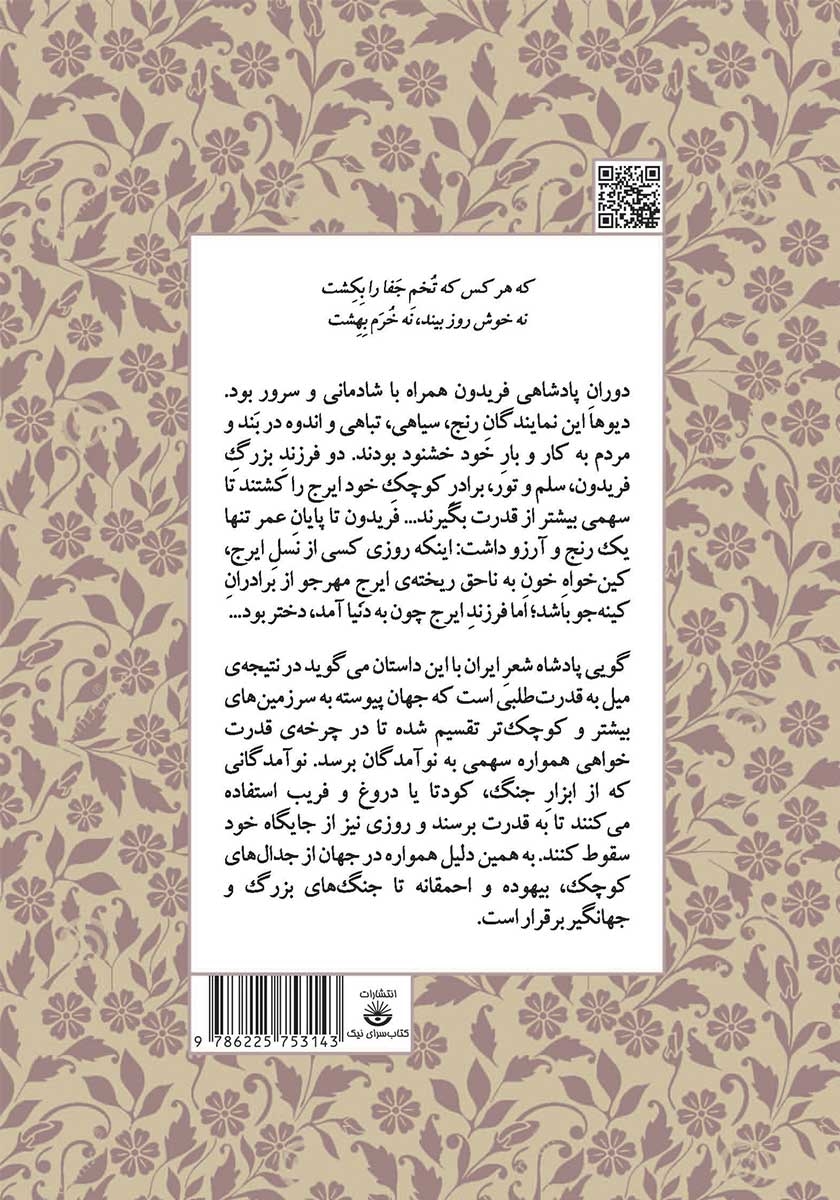 که هر کس که تُخمِ جَفا را بِکِشت
نه خوش روز بیند، نَه خُرَم بِهِشت
دورانِ پادشاهی فریدون همراه با شادمانی و سرور بود.
دیوها این نمایندگانِ رنج، سیاهی، تباهی و اندوه در بَند و
مردم به کار و بارِ خود خشنود بودند. دو فرزندِ بزرگِ
فریدون، سلم و تور، برادر کوچک خود ایرج را کشتند تا
سهمی بیشتر از قدرت بگیرند... فریدون تا پایانِ عمر تنها
یک رنج و آرزو داشت: اینکه روزی کسی از نسلِ ایرج،
کین‌خواهِ خونِ به ناحق ریخته‌ی ایرجِ مهرجو از برادرانِ
کینه‌جو باشد؛ اما فرزندِ ایرج چون به دنیا آمد، دختر بود...
گویی پادشاه شعرِ ایران با این داستان می‌گوید در نتیجه‌ی
میل به قدرت‌طلبی است که جهان پیوسته به سرزمین‌های
بیشتر و کوچک‌تر تقسیم شده تا در چرخه‌ی قدرت
خواهی همواره سهمی به نوآمدگان برسد. نوآمدگانی
که از ابزارِ جنگ، کودتا یا دروغ و فریب استفاده
می‌کنند تا به قدرت برسند و روزی نیز از جایگاه خود
سقوط کنند. به همین دلیل همواره در جهان از جدال‌های
کوچک، بیهوده و احمقانه تا جنگ‌های بزرگ و
جهانگیر برقرار است.
انتشارات
کتاب‌سرای نیک
9 786225 753143